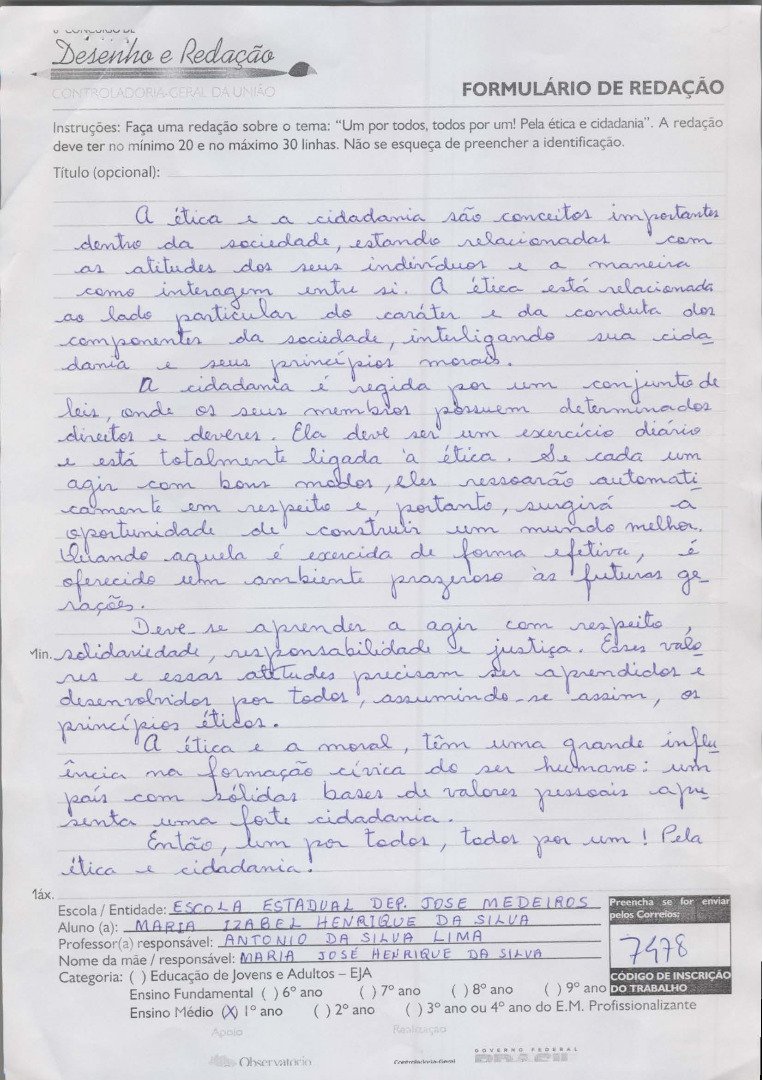 6º CONCURSO DE
Desenho e Redação
CONTROLADORIA-GERAL DA UNIÃO
FORMULÁRIO DE REDAÇÃO
Instruções: Faça uma redação sobre o tema: “Um por todos, todos por um! Pela ética e cidadania”. A redação
deve ter no mínimo 20 e no máximo 30 linhas. Não se esqueça de preencher a identificação.
Título (opcional):
A ética e a cidadania são conceitos importantes
dentro da sociedade, estando relacionadas com
as atitudes dos seus indivíduos e a maneira
como interagem entre si. A ética está relacionada
ao lado particular do caráter e da conduta dos
componentes da sociedade, interligando sua cida
dania e seus princípios morais.
A cidadania é regida por um conjunto de
leis, onde os seus membros possuem determinados
direitos e deveres. Ela deve ser um exercício diário
e está totalmente ligada à ética. Se cada um
agir com bons modos, eles ressoarão automati
camente em respeito e, portanto, surgirá a
oportunidade de construir um mundo melhor.
Quando aquela é exercida de forma efetiva, é
oferecido um ambiente prazeroso às futuras ge
rações.
Deve-se aprender a agir com respeito,
Min. solidariedade, responsabilidade e justiça. Esses valo
res e essas atitudes precisam ser aprendidos e
desenvolvidos por todos, assumindo-se assim, os
princípios éticos.
A ética e a moral, têm uma grande influ
ência na formação cívica do ser humano: um
país com sólidas bases de valores pessoais apre
senta uma forte cidadania.
Então, um por todos, todos por um! Pela
ética e cidadania!
Máx.
Escola / Entidade: ESCOLA ESTADUAL DEP. JOSE MEDEIROS
Aluno (a): MARIA IZABEL HENRIQUE DA SILVA
Professor(a) responsável: ANTONIO DA SILVA LIMA
Nome da mãe / responsável: MARIA JOSÉ HENRIQUE DA SILVA
Preencha se for enviar
pelos Correios:
7478
CÓDIGO DE INSCRIÇÃO
DO TRABALHO
Categoria: ( ) Educação de Jovens e Adultos – EJA
Ensino Fundamental ( ) 6º ano ( ) 7º ano ( ) 8º ano ( ) 9º ano
Ensino Médio (X) 1º ano ( ) 2º ano ( ) 3º ano ou 4º ano do E.M. Profissionalizante
Apoio
Realização
Observatório
Controladoria-Geral
GOVERNO FEDERAL
BRASIL